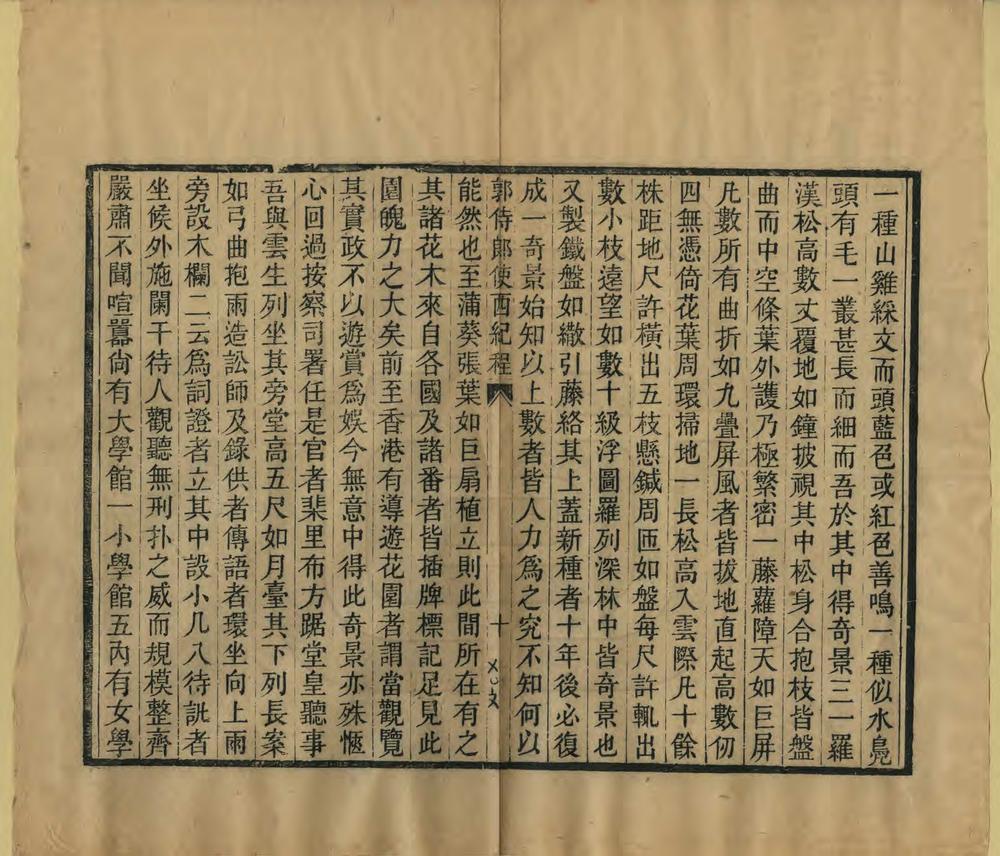 一種山雞綵文而頭藍色或紅色善鳴一種似水鳧
頭有毛一叢甚長而細而吾於其中得奇景三一羅
漢松高數丈覆地如鐘披視其中松身合抱枝皆盤
曲而中空條葉外護乃極繁密一藤蘿障天如巨屏
凡數所有曲折如九疊屏風者皆拔地直起高數仞
四無憑倚花葉周環掃地一長松高入雲際凡十餘
株距地尺許橫出五枝懸鍼周匝如盤每尺許輒出
數小枝遠望如數十級浮圖羅列深林中皆奇景也
又製鐵盤如繖引藤絡其上蓋新種者十年後必復
成一奇景始知以上數者皆人力為之究不知何以
郭侍郎使西紀程 十
能然也至蒲葵張葉如巨扇植立則此間所在有之
其諸花木來自各國及諸番者皆插牌標記足見此
園魄力之大矣前至香港有導遊花園者謂當觀覽
其實政不以遊賞為娛今無意中得此奇景亦殊愜
心回過按察司署任是官者棐里布方踞堂皇聽事
吾與雲生列坐其旁堂高五尺如月臺其下列長案
如弓曲抱兩造訟師及錄供者傳語者環坐向上兩
旁設木欄二云為詞證者立其中設小几入待訊者
坐候外施闌干待人觀聽無刑扑之威而規模整齊
嚴肅不聞喧囂尙有大學館一小學館五內有女學